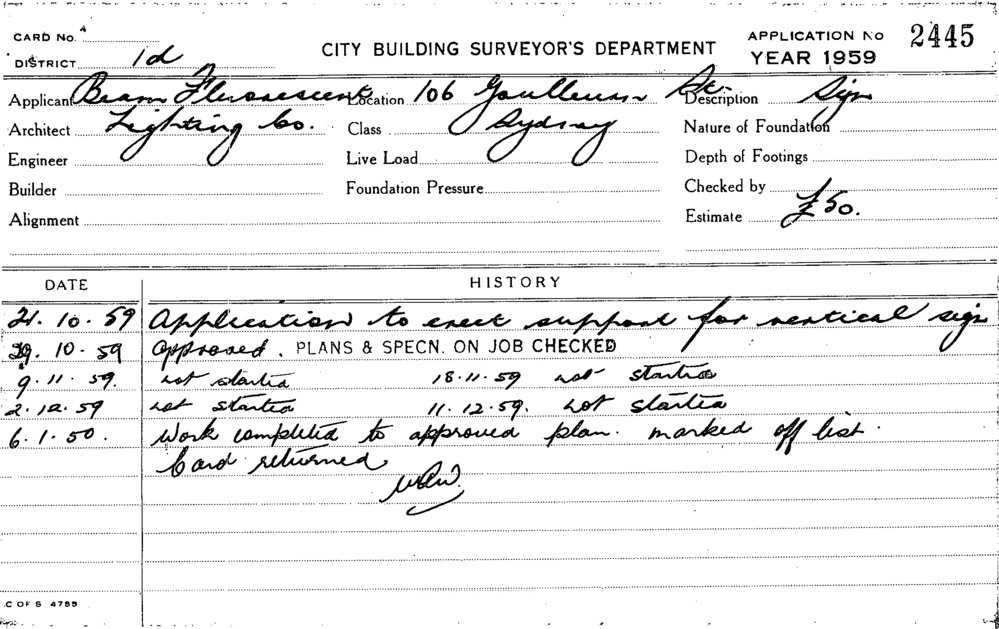 CARD No. 4
CITY BUILDING SURVEYOR'S DEPARTMENT
APPLICATION No 2445
YEAR 1959
DISTRICT 1d
Applicant Beam Fluorescent Location 106 Goulburn St. Description Sign
Architect Lighting Co. Class Sydney Nature of Foundation
Engineer Live Load Depth of Footings
Builder Foundation Pressure Checked by
Alignment Estimate £50.
DATE HISTORY
21.10.59 Application to erect support for vertical sign
29.10.59 Approved. PLANS & SPECN. ON JOB CHECKED
9.11.59. not started 18.11.59 not started
2.12.59 not started 11.12.59. not started
6.1.50. Work completed to approved plan. marked off list.
Card returned
C OF S 4755